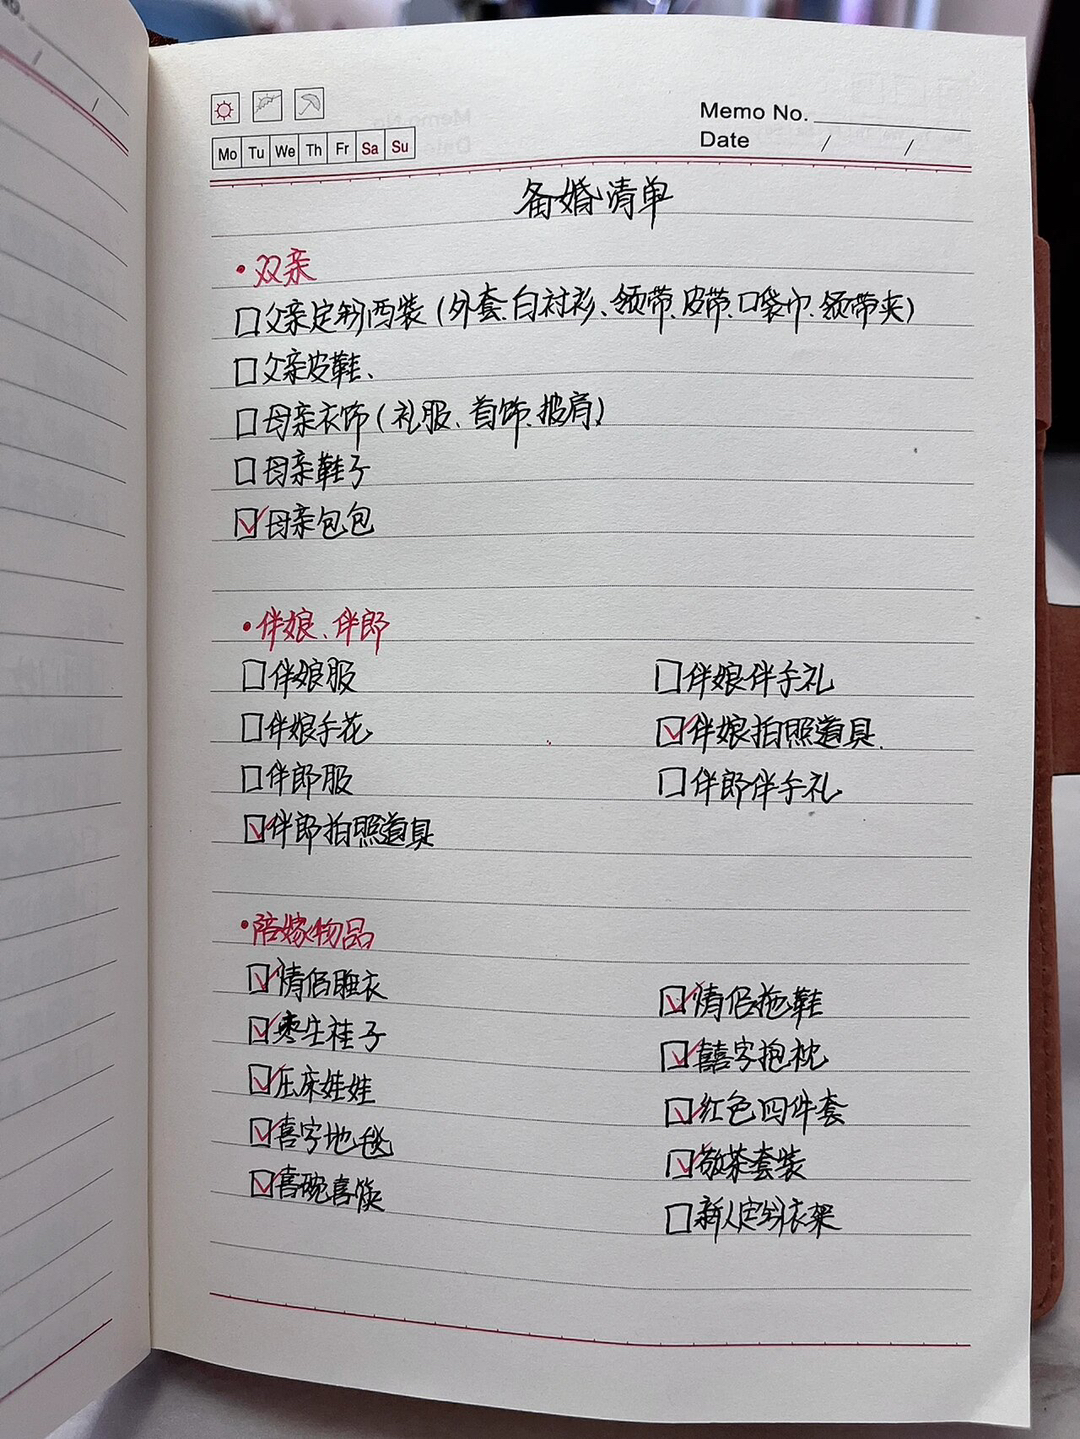 Mo Tu We Th Fr Sa Su
Memo No.
Date / /
备婚清单
•双亲
□父亲定制西装(外套、白衬衫、领带、皮带、口袋巾、领带夹)
□父亲皮鞋、
□母亲衣饰(礼服、首饰、披肩)
□母亲鞋子
☑母亲包包
•伴娘、伴郎
□伴娘服
□伴娘手花
□伴郎服
☑伴郎拍照道具
□伴娘伴手礼
☑伴娘拍照道具
□伴郎伴手礼
•陪嫁物品
☑情侣睡衣
☑枣生桂子
☑压床娃娃
☑喜字地毯
☑喜碗喜筷
☑情侣拖鞋
☑囍字抱枕
☑红色四件套
☑敬茶套装
□新人定制衣架